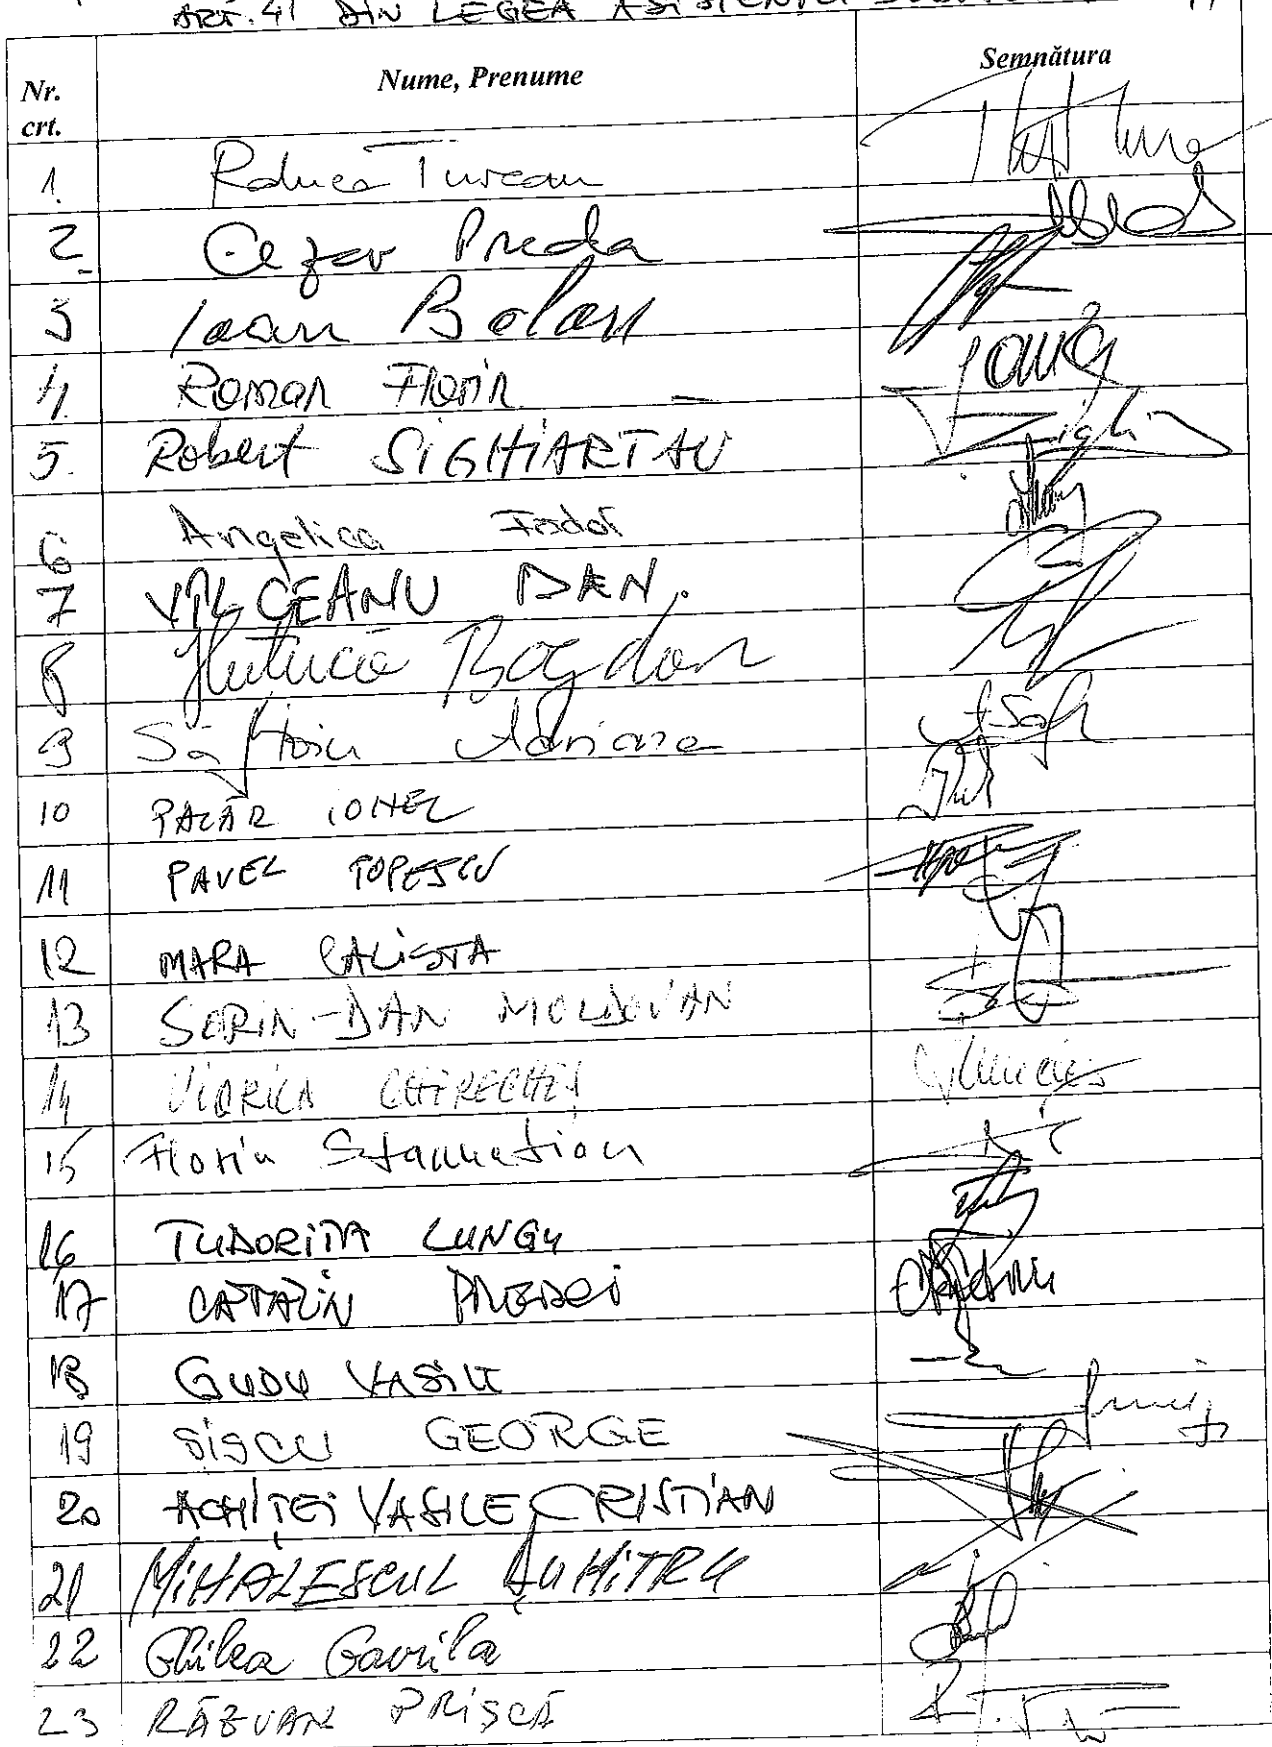 ART. 41 DIN LEGEA ASISTENȚEI
Nr. crt. Nume, Prenume Semnătura
1. Raluca Turcan
2. Cezar Preda
3 Ioan Balan
4. Roman Florin
5. Robert SIGHIARTAU
6 Angelica Fodor
7 VILCEANU DAN.
8 Hutuca Bogdan
9 Săftoiu Adriana
10 PALĂR IONEL
11 PAVEL POPESCU
12 MARA CALISTA
13 SORIN-DAN MOLDOVAN
14 VIORICA CHERECHEȘ
15 Florin Stamatian
16 TUDORIȚA LUNGU
17 CATALIN PREDOI
18 GUDU VASILE
19 SIȘCU GEORGE
20 ACHIȚEI VASILE CRISTIAN
21 MIHALESCUL DUMITRU
22 Ghilea Gavrila
23 RĂZVAN PRIȘCĂ